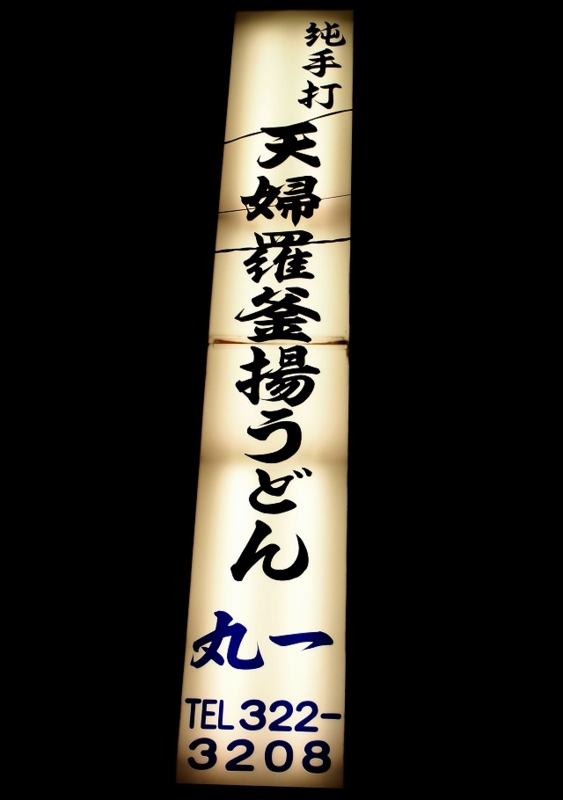 純手打
天婦羅釜揚うどん
丸一
TEL322-
3208